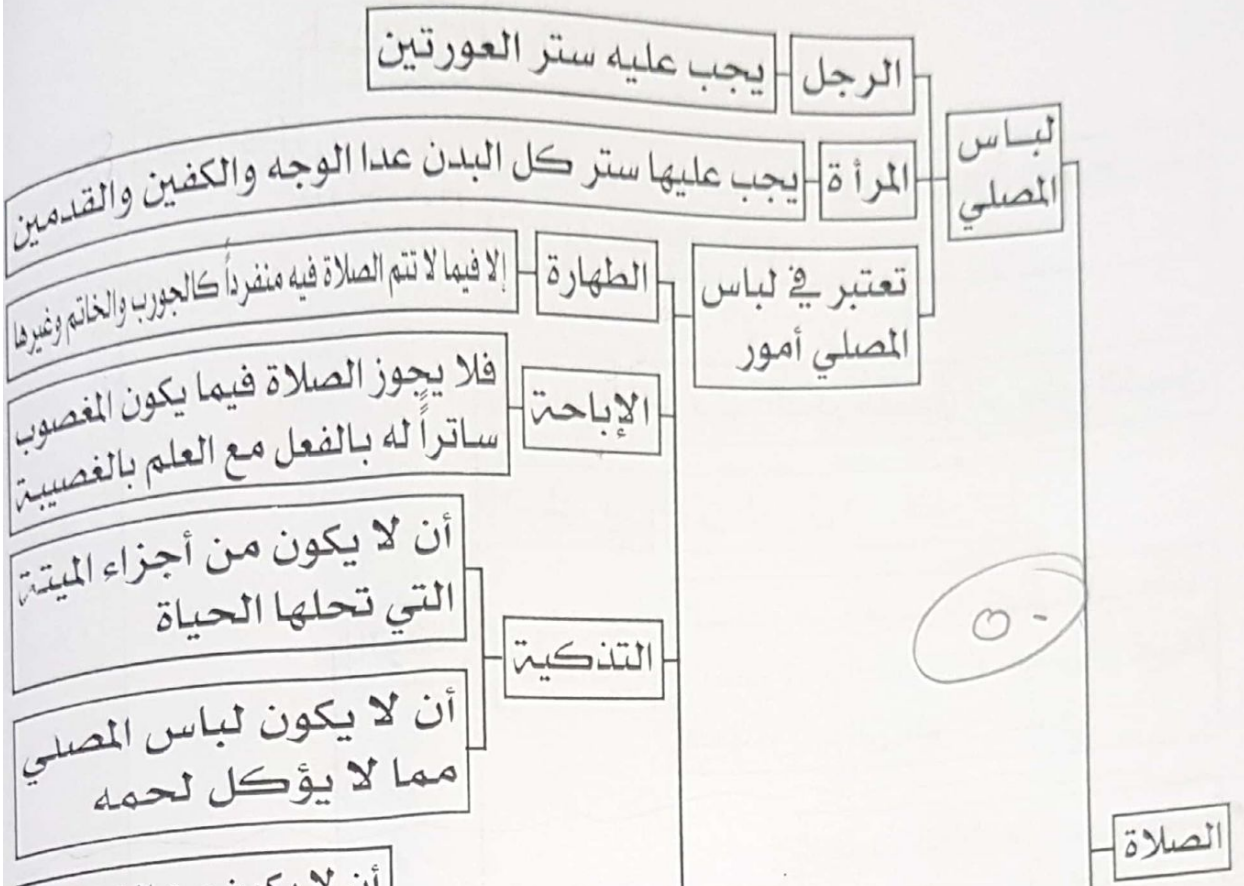 الرجل
يجب عليه ستر العورتين
لباس
المصلي
المرأة
يجب عليها ستر كل البدن عدا الوجه والكفين والقدمين
تعتبر في لباس
المصلي أمور
الطهارة
إلا فيما لا تتم الصلاة فيه منفرداً كالجورب والخاتم وغيرها
الإباحة
فلا يجوز الصلاة فيما يكون المغصوب
ساتراً له بالفعل مع العلم بالغصبية
التذكية
أن لا يكون من أجزاء الميتة
التي تحلها الحياة
أن لا يكون لباس المصلي
مما لا يؤكل لحمه
الصلاة
أن لا يكون